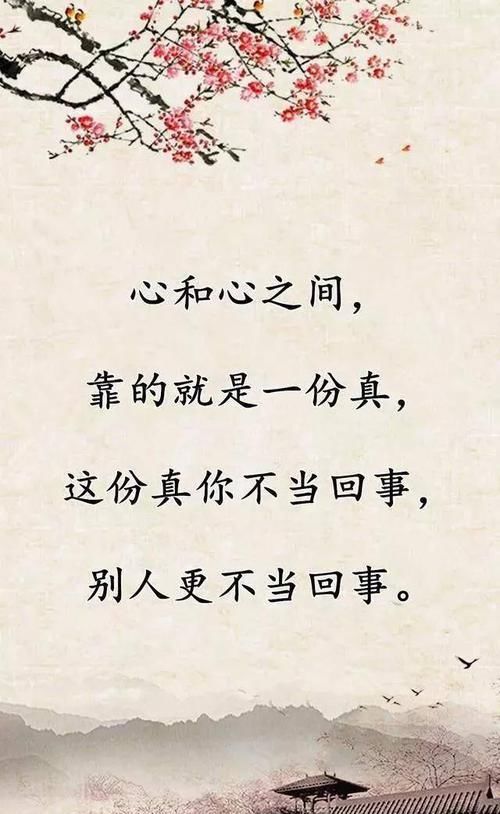 心和心之间，
靠的就是一份真，
这份真你不当回事，
别人更不当回事。